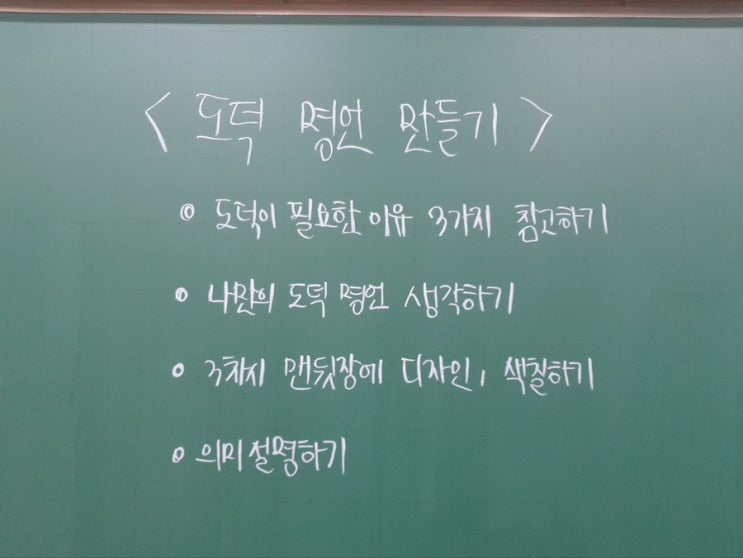 < 도덕 명언 만들기 >
◎ 도덕이 필요한 이유 3가지 참고하기
• 나만의 도덕 명언 생각하기
• 3차시 맨뒷장에 디자인, 색칠하기
• 의미 설명하기